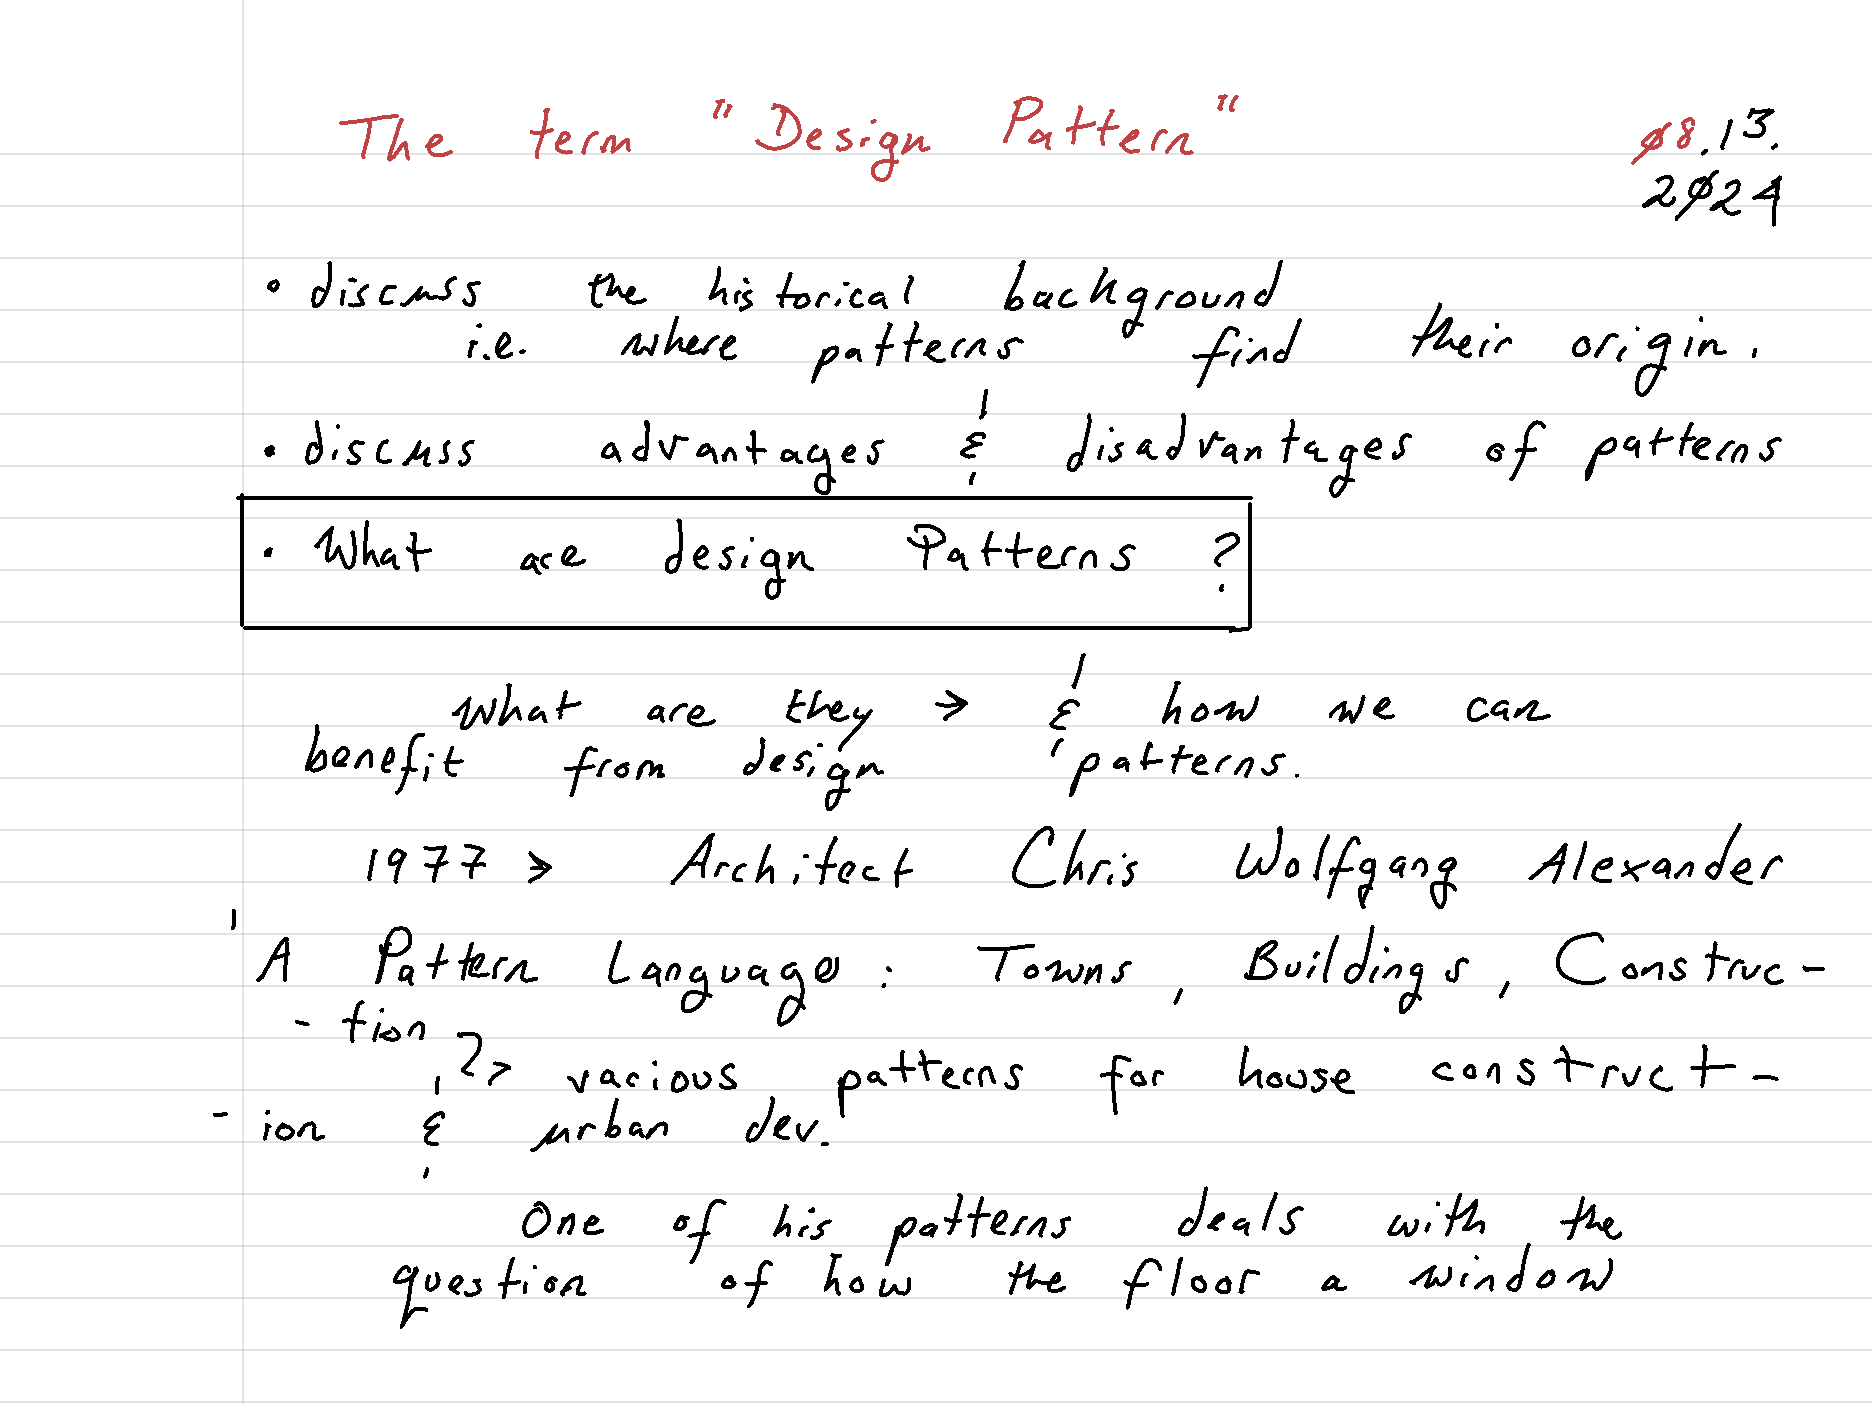 The term "Design Pattern"
08.13.
2024
• discuss the historical background
i.e. where patterns find their origin.
• discuss advantages & disadvantages of patterns
• What are design Patterns ?
What are they → & how we can
benefit from design patterns.
1977 > Architect Chris Wolfgang Alexander
A Pattern Language : Towns, Buildings, Construc-
- tion
> various patterns for house construct-
- ion & urban dev.
One of his patterns deals with the
question of how the floor a window